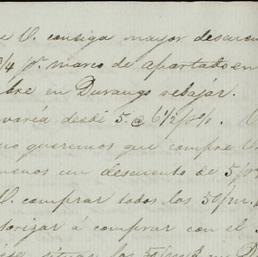 e V. consiga mayor descuen
1/4 pr. marco de apartado en
bre en Durango rebajar.
varía desde 5 @ 6 1/2 p%.
no queremos que compre V
menos un descuento de 5 p%
V. comprar todos los 50 m.
torizar á comprar con el